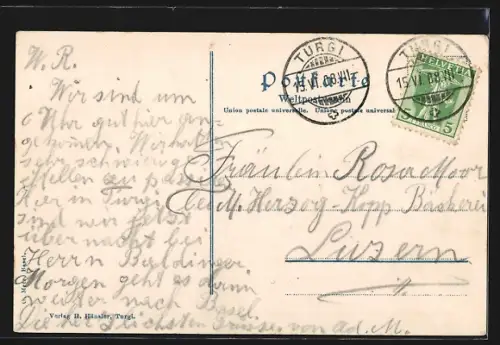 W. R.
Wir sind um
6 Uhr gut hier an-
gekommen. Wir hatten
sehr schwierige
Stellen zu passieren
Hier in Turgi
sind wir jetzt
übernacht bei
Herrn Baldinger.
Morgen geht es dann
weiter nach Basel.
Die herzlichsten Grüsse von
Verlag H. Hänsler, Turgi.
Postkarte
Weltpostverein
Union postale universelle. Unione postale universale
TURGI
15.VI.08.VII
TURGI
15.VI.08.VII
HELVETIA
5
5
Fräulein Rosa Moor
bei M. Herzog-Kopp Bäckerei
Luzern